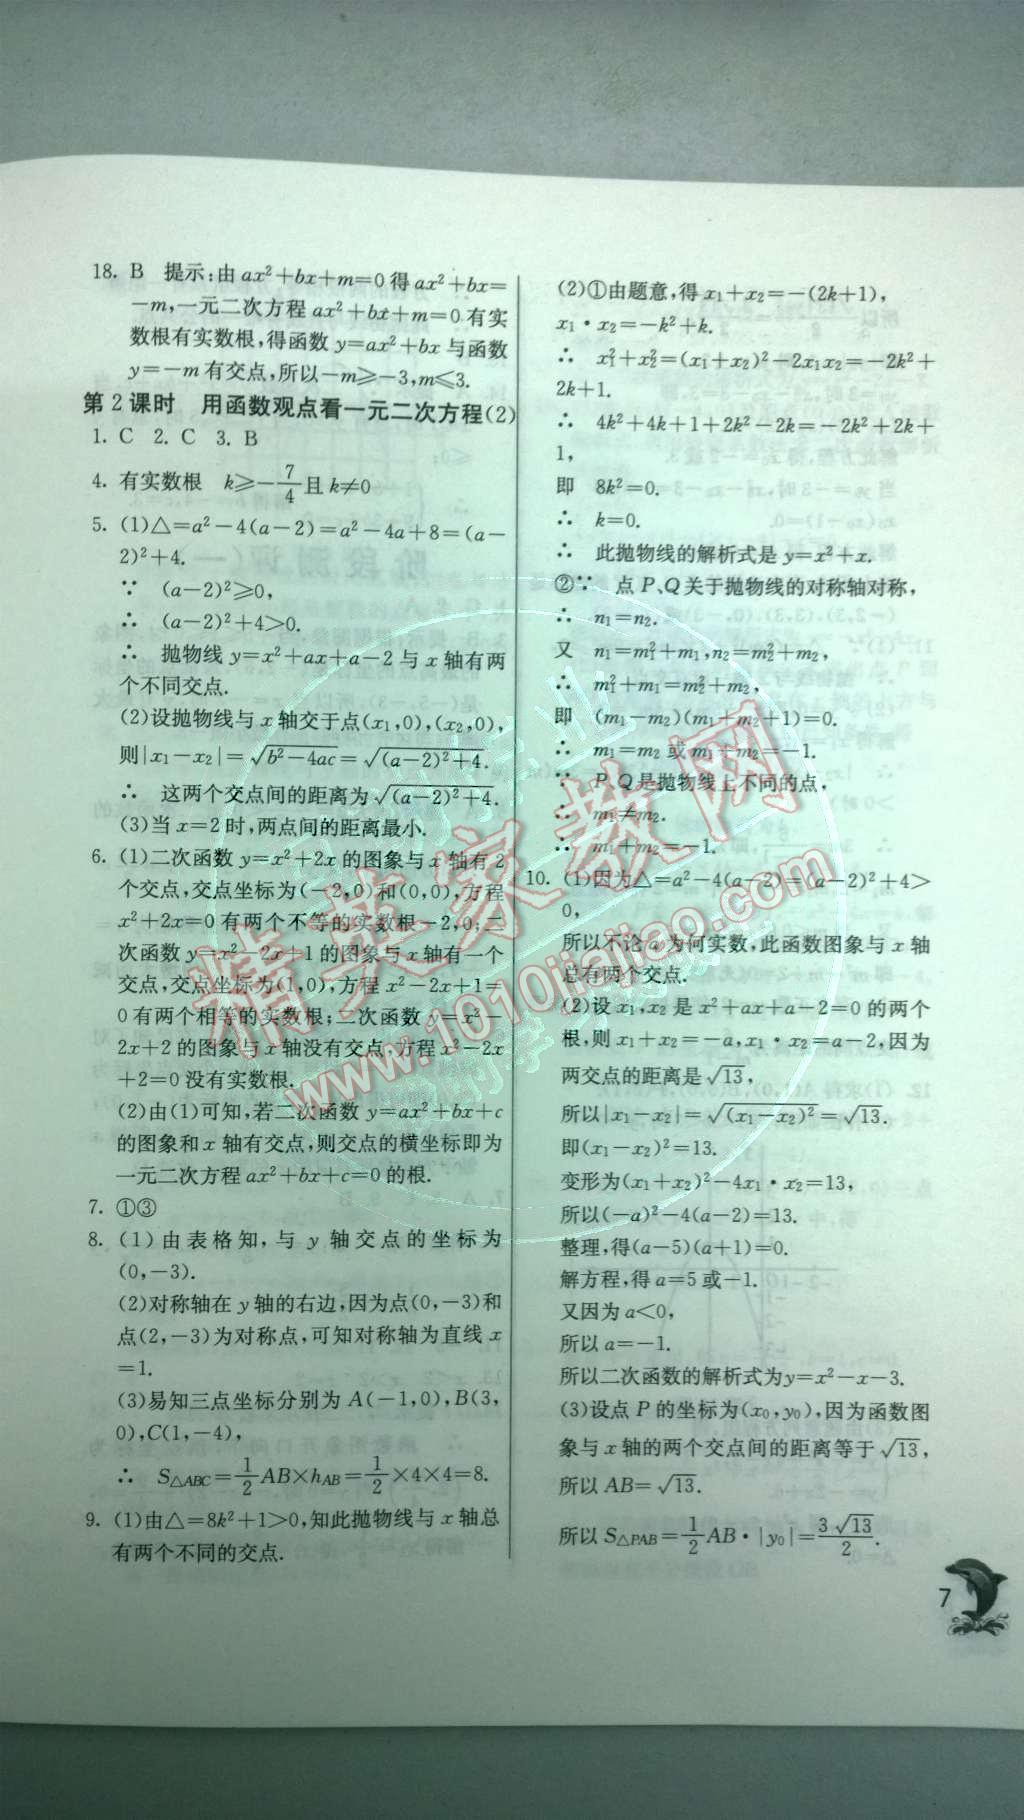 18. B 提示:由ax²+bx+m=0得ax²+bx=
-m,一元二次方程ax²+bx+m=0有实
数根有实数根,得函数y=ax²+bx与函数
y=-m有交点,所以-m≥-3,m≤3.
第2课时 用函数观点看一元二次方程(2)
1. C 2. C 3. B
4. 有实数根 k≥-7/4且k≠0
5. (1)△=a²-4(a-2)=a²-4a+8=(a-
2)²+4.
∵ (a-2)²≥0,
∴ (a-2)²+4>0.
∴ 抛物线y=x²+ax+a-2与x轴有两
个不同交点.
(2)设抛物线与x轴交于点(x₁,0),(x₂,0),
则|x₁-x₂|=√(b²-4ac)=√((a-2)²+4).
∴ 这两个交点间的距离为√((a-2)²+4).
(3)当x=2时,两点间的距离最小.
6. (1)二次函数y=x²+2x的图象与x轴有2
个交点,交点坐标为(-2,0)和(0,0),方程
x²+2x=0有两个不等的实数根-2,0;二
次函数y=x²-2x+1的图象与x轴有一个
交点,交点坐标为(1,0),方程x²-2x+1=
0有两个相等的实数根;二次函数y=x²-
2x+2的图象与x轴没有交点,方程x²-2x
+2=0没有实数根.
(2)由(1)可知,若二次函数y=ax²+bx+c
的图象和x轴有交点,则交点的横坐标即为
一元二次方程ax²+bx+c=0的根.
7. ①③
8. (1)由表格知,与y轴交点的坐标为
(0,-3).
(2)对称轴在y轴的右边,因为点(0,-3)和
点(2,-3)为对称点,可知对称轴为直线x
=1.
(3)易知三点坐标分别为A(-1,0),B(3,
0),C(1,-4),
∴ S△ABC=1/2AB×hAB=1/2×4×4=8.
9. (1)由△=8k²+1>0,知此抛物线与x轴总
有两个不同的交点.
(2)①由题意,得x₁+x₂=-(2k+1),
x₁·x₂=-k²+k.
∴ x₁²+x₂²=(x₁+x₂)²-2x₁x₂=-2k²+
2k+1.
∴ 4k²+4k+1+2k²-2k=-2k²+2k+
1,
即 8k²=0.
∴ k=0.
∴ 此抛物线的解析式是y=x²+x.
②∵ 点P、Q关于抛物线的对称轴对称,
∴ n₁=n₂.
又 n₁=m₁²+m₁,n₂=m₂²+m₂,
∴ m₁²+m₁=m₂²+m₂,
即 (m₁-m₂)(m₁+m₂+1)=0.
∴ m₁=m₂或m₁+m₂=-1.
∵ P、Q是抛物线上不同的点,
∴ m₁≠m₂.
∴ m₁+m₂=-1.
10. (1)因为△=a²-4(a-2)=(a-2)²+4>
0,
所以不论a为何实数,此函数图象与x轴
总有两个交点.
(2)设x₁,x₂是x²+ax+a-2=0的两个
根,则x₁+x₂=-a,x₁·x₂=a-2,因为
两交点的距离是√13,
所以|x₁-x₂|=√((x₁-x₂)²)=√13.
即(x₁-x₂)²=13.
变形为(x₁+x₂)²-4x₁·x₂=13,
所以(-a)²-4(a-2)=13.
整理,得(a-5)(a+1)=0.
解方程,得a=5或-1.
又因为a<0,
所以a=-1.
所以二次函数的解析式为y=x²-x-3.
(3)设点P的坐标为(x₀,y₀),因为函数图
象与x轴的两个交点间的距离等于√13,
所以AB=√13.
所以S△PAB=1/2AB·|y₀|=3√13/2.
7
精英家教网
www.1010jiajiao.com